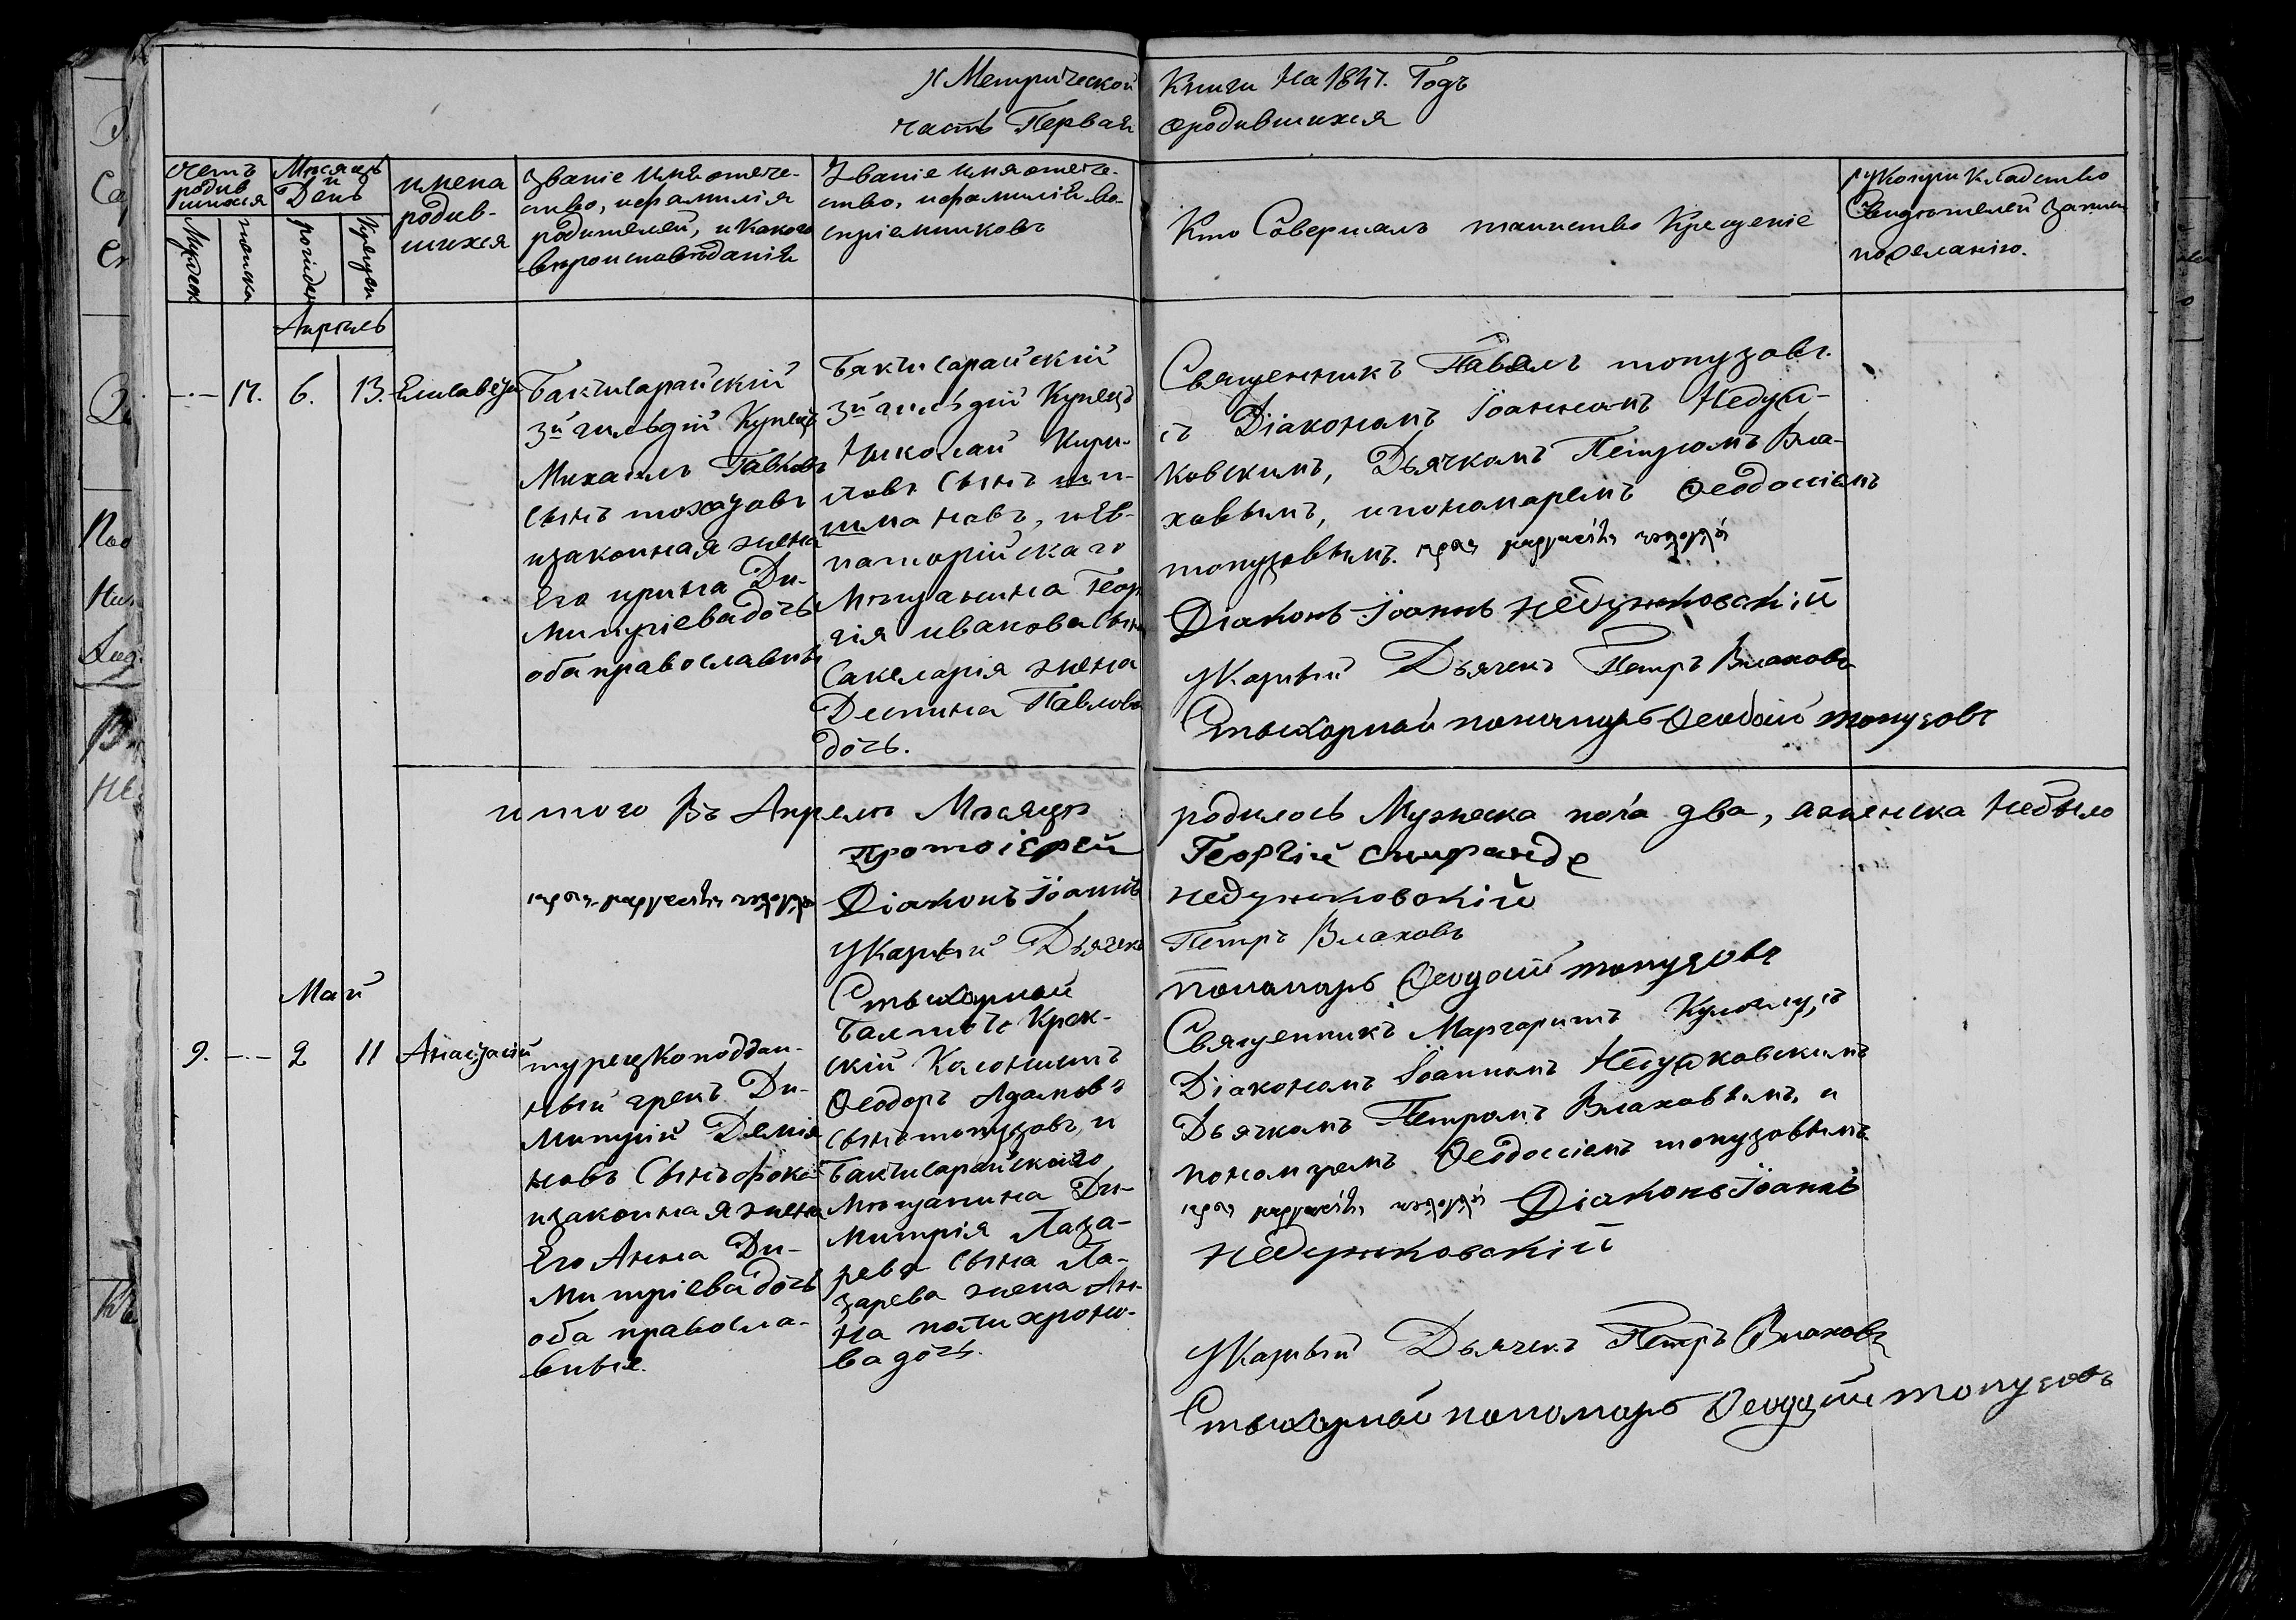 Метрической Книги На 1847. Годъ
часть Первая о родившихся
Счетъ родив шихся
Месяцъ и День
имена родив- шихся
Званіе имя отече-
ство, и фамилія
родителей, и Какого
вероисповѣданія
Званіе имя отече-
ство, и фамилія во-
спріемниковъ
Кто Совершалъ таинство Крещеніе
рукоприкладство
Свидетелей записи
по желанію.
Мужеск
женска
рожден
Крещен
Апрель
17. 6. 13. Елисавета
Бакчисарайскій
3й гильдій Купецъ
Михаилъ Павловъ
сынъ
и законная жена
Его ирина Ди-
митріева дочь
оба православны
Бакчисарайскій
3й гильдій Купецъ
Николай Кири-
ловъ Сынъ ши-
шмановъ, и Ев-
паторійскаго
Мещанина Геор
гія иванова Сына
Сакеларія жена
Деспина Павлова
дочь.
Священникъ Павелъ топузовъ.
съ Діакономъ Іоанномъ Недуй-
ковскимъ, Дьячкомъ Петромъ Вла-
ховымъ, и пономаремъ Ѳеодосіемъ
топузовымъ.
Діаконъ Іоаннъ недужковскій
Указный Дьячекъ Петръ Влаховъ
Стихарный пономарь Ѳеодосій топузовъ
итого Въ Апреле Месяце родилось Мужеска пола два, а женска Небыло
протоіерей Георгій спиранде
Діаконъ Іоаннъ недужковскій
Указный Дьячекъ Петръ Влаховъ
Стихарный пономарь Ѳеодосій топузовъ
Май
9. 2 11 Анастасій
турецкоподдан-
ный грекъ Ди-
митрій Дамія
новъ Сынъ фока
и законная жена
Его Анна Ди-
митріева дочь
оба правосла-
вные.
Балта Крек-
скій Калонистъ
Ѳеодоръ Адамовъ
Сынъ топузовъ, и
Бакчисарайскаго
Мещанина Ди-
митрія Лаза-
рева Сына Ла-
зарева жена Ан-
на полихроно-
ва дочь.
Священникъ Маргаритъ съ
Діакономъ Іоанномъ Недужковскимъ
Дьячкомъ Петромъ Влаховымъ, и
пономаремъ Ѳеодосіемъ топузовымъ
Діаконъ Іоаннъ
недужковскій
Указный Дьячекъ Петръ Влаховъ
Стихарный пономарь Ѳеодосій топузовъ